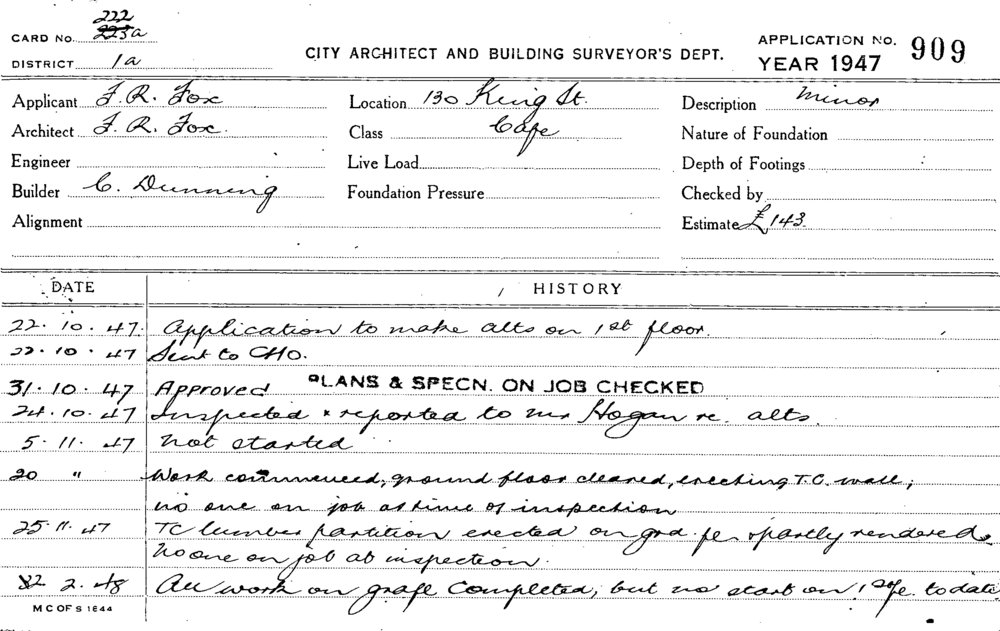 222
CARD No. 223a
DISTRICT 1a
CITY ARCHITECT AND BUILDING SURVEYOR'S DEPT.
APPLICATION NO. 909
YEAR 1947
Applicant F. R. Fox
Location 130 King St.
Description Minor
Architect F. R. Fox.
Class Cafe
Nature of Foundation
Engineer
Live Load
Depth of Footings
Builder C. Dunning
Foundation Pressure
Checked by
Alignment
Estimate £143.
DATE HISTORY
22.10.47. Application to make alts on 1st floor.
22.10.47 Sent to CHO.
31.10.47 Approved PLANS & SPECN. ON JOB CHECKED
24.10.47 Inspected & reported to Mr Hogan re. alts.
5.11.47 Not started
20 " Work commenced, ground floor cleared, erecting T.C. wall;
no one on job at time of inspection
25.11.47 TC lumber partition erected on grd. fl & partly rendered
No one on job at inspection.
2.48 All work on completed, but no start on 1st to date
M C OF S 1644